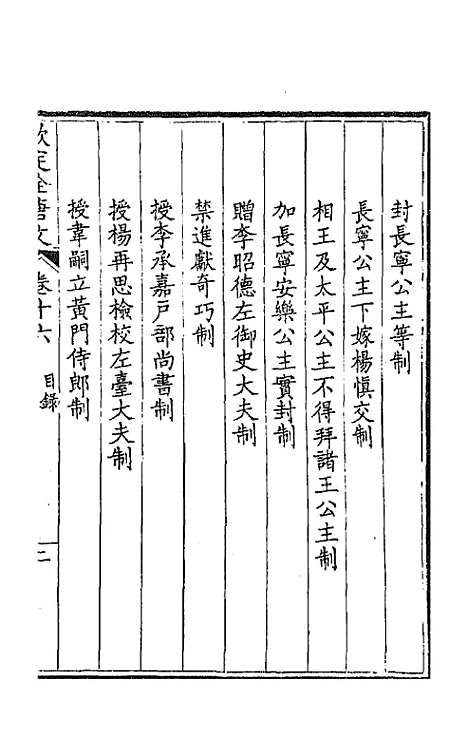 封長寧公主等制
長寧公主下嫁楊慎交制
相王及太平公主不得拜諸王公主制
加長寧安樂公主實封制
贈李昭德左御史大夫制
禁進獻奇巧制
授李承嘉戶部尚書制
授楊再思檢校左臺大夫制
授韋嗣立黃門侍郎制
欽定全唐文 卷十六 目錄 二